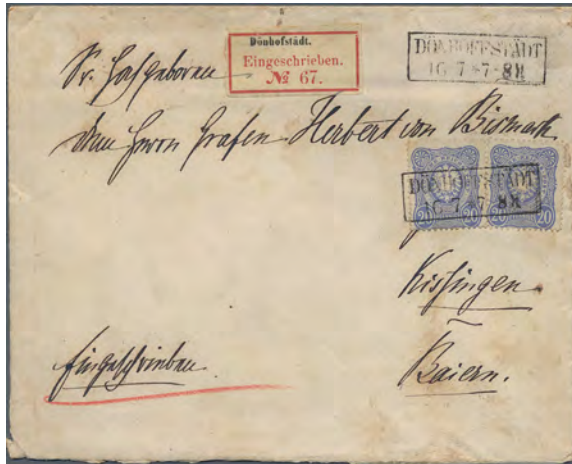 Dönhofstädt.
Eingeschrieben.
№ 67.
DÖNHOFFSTÄDT
16 7 -7-8N
Sr. Hochgeboren
dem Herrn Grafen Herbert von Bismark
DÖNHOFFSTÄDT
16 7 7 8N
20 20 20 20
Kissingen
Baiern.
Eingeschrieben